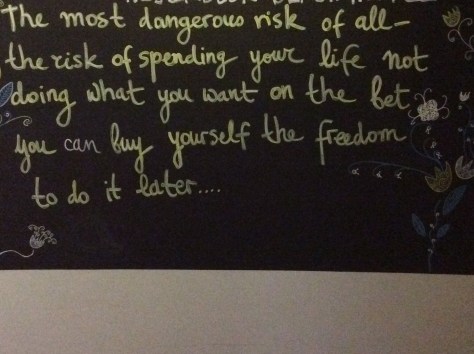 The most dangerous risk of all—
the risk of spending your life not
doing what you want on the bet
you can buy yourself the freedom
to do it later....